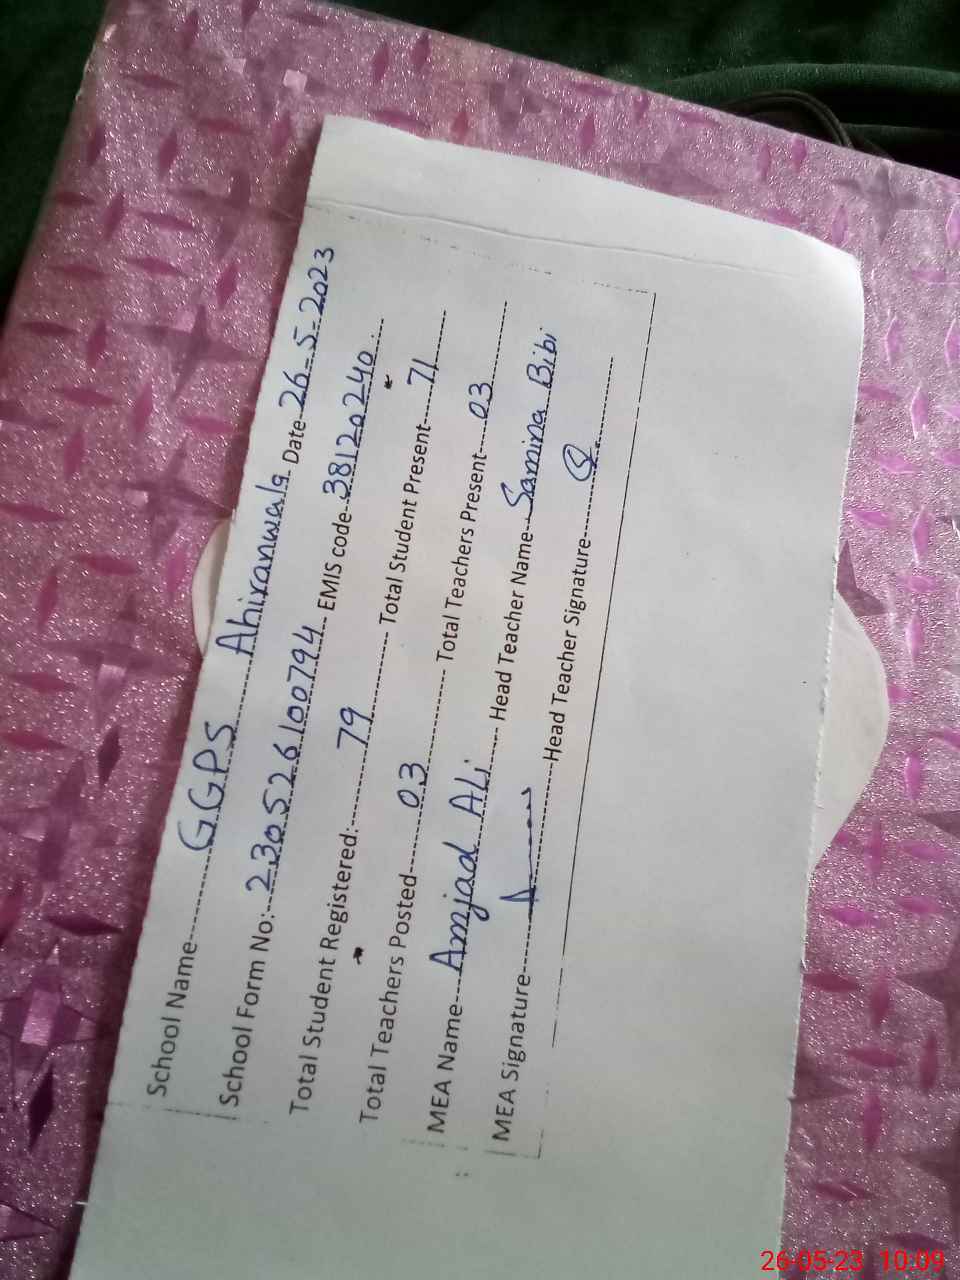 School Name----------GGPS Ahiranwala Date 26-5-2023
School Form No:--230526100794 EMIS code--38120240
Total Student Registered:--------79-------- Total Student Present-----71
Total Teachers Posted--------03-------- Total Teachers Present-----03
MEA Name---Amjad Ali------ Head Teacher Name--Samina Bibi
MEA Signature------------------Head Teacher Signature------------------
26-05-23 10:09